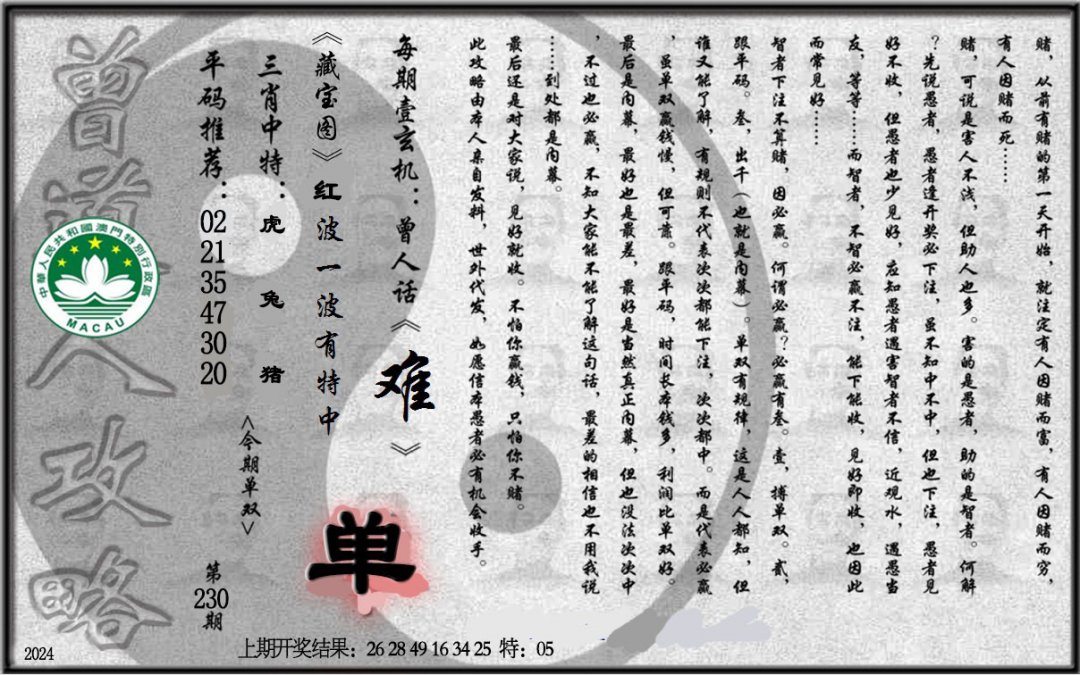 赌，从前有赌的第一天开始，就注定有人因赌而富，有人因赌而穷，
有人因赌而死……
赌，可说是害人不浅，但助人也多。害的是愚者，助的是智者。何解
？先说愚者，愚者逢开奖必下注，虽不知中不中，但也下注，愚者见
好不收，但愚者也少见好，应知愚者遇害智者不信，近观水，遇愚当
友，等等……而智者，不智必赢不注，能下能收，见好即收，也因此
而常见好……
智者下注不算赌，因必赢。何谓必赢？必赢有叁。壹，搏单双。贰，
跟平码。叁，出千（也就是内幕）。单双有规律，这是人人都知，但
谁又能了解，有规则不代表次次都能下注，次次都中。而是代表必赢
，虽单双赢钱慢，但可靠。跟平码，时间长本钱多，利润比单双好。
最后是内幕，最好也是最差，最好是当然真正内幕，但也没法次次中
，不过也必赢，不知大家能不能了解这句话，最差的相信也不用我说
……到处都是内幕。
最后还是对大家说，见好就收。不怕你赢钱，只怕你不赌。
此攻略由本人亲自发料，世外代发，如愿信本愚者必有机会收手。
每期壹玄机：曾人话《难》
《藏宝图》红波一波有特中
单
三肖中特：虎 兔 猪
<今期单双>
平码推荐：02 21 35 47 30 20
第230期
曾道人攻略
中華人民共和國澳門特別行政區
MACAU
2024
上期开奖结果：26 28 49 16 34 25 特：05